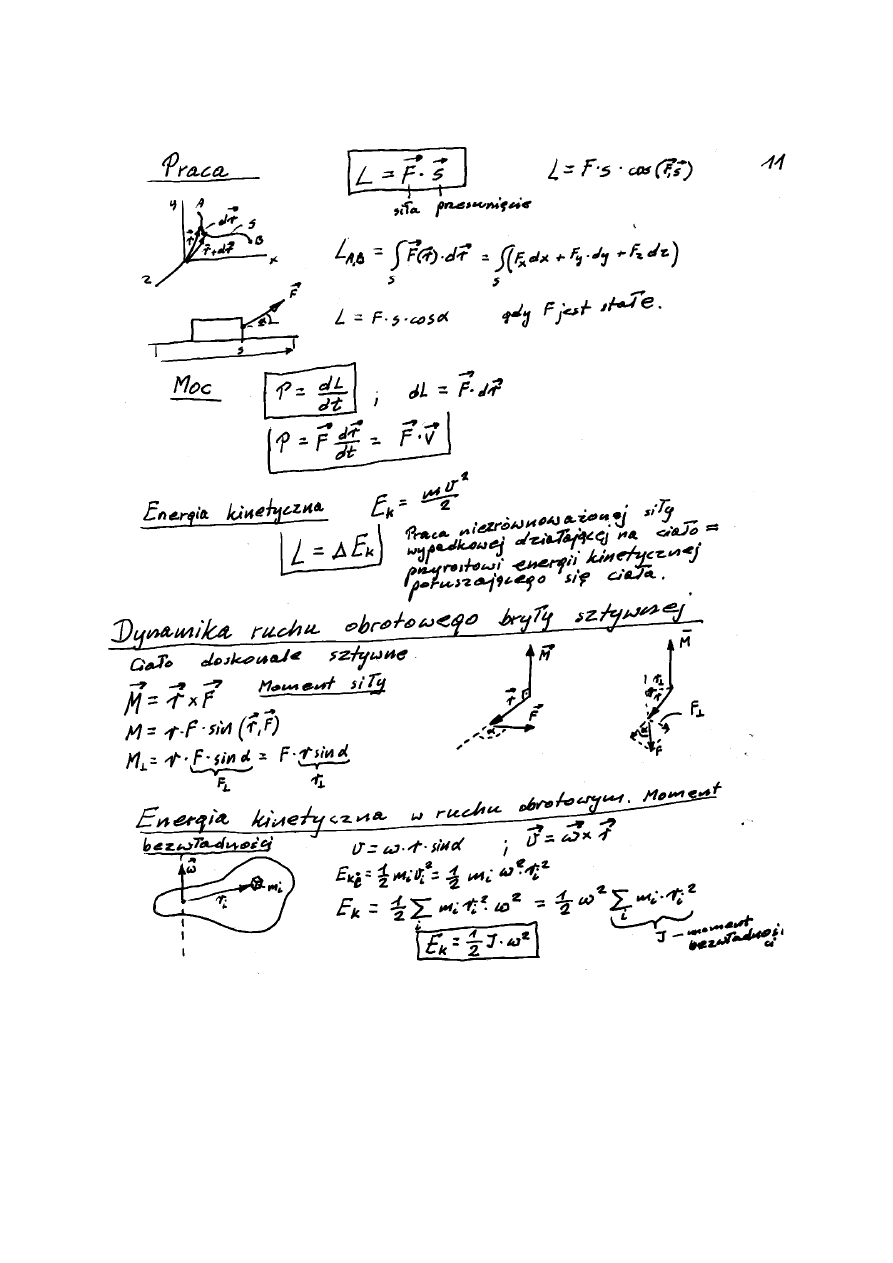 11
Praca
L = F⃗ · s⃗
L = F · s · cos (F⃗,s⃗)
siła przesunięcie
y A dr⃗ s B r⃗ r⃗+dr⃗ x z
L_A,B = ∫_s F⃗(r⃗)·dr⃗ = ∫_s (F_x dx + F_y·dy + F_z dz)
F⃗ α s
L = F·s·cosα gdy F jest stałe.
Moc P = dL/dt ; dL = F⃗·dr⃗
P = F⃗ dr⃗/dt = F⃗·V⃗
Energia kinetyczna E_k = mv²/2
L = ΔE_k
Praca niezrównoważonej siły
wypadkowej działającej na ciało =
przyrostowi energii kinetycznej
poruszającego się ciała.
Dynamika ruchu obrotowego bryły sztywnej
Ciało doskonale sztywne
M⃗ = r⃗ × F⃗ Moment siły
M = r·F·sin (r⃗,F⃗)
M⊥ = r·F·sinα = F·r sinα
F⊥ r⊥
M⃗ r⃗ F⃗ α
M r⊥ r F⊥ α F
Energia kinetyczna w ruchu obrotowym. Moment
bezwładności
v = ω·r·sinα ; v⃗ = ω⃗ × r⃗
ω⃗ r_i m_i
E_ki = 1/2 m_i v_i² = 1/2 m_i ω² r_i²
E_k = 1/2 Σ_i m_i r_i² · ω² = 1/2 ω² Σ_i m_i · r_i²
J – moment
bezwładności
ci
E_k = 1/2 J·ω²